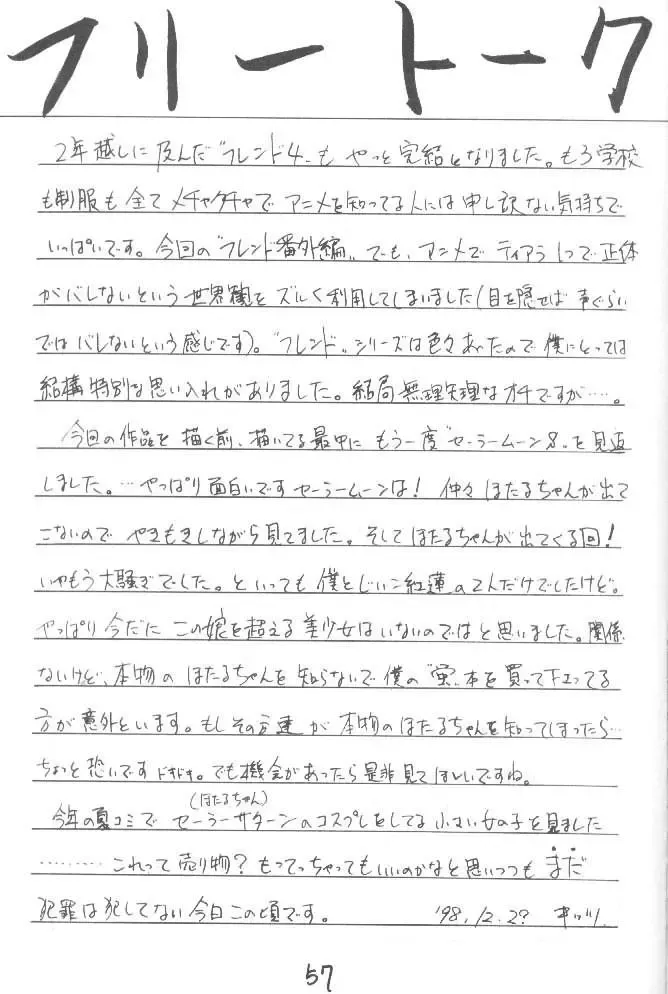 フリートーク
2年越しに及んだ"フレンド4"もやっと完結となりました。もう学校
も制服も全てメチャクチャでアニメを知ってる人には申し訳ない気持ちで
いっぱいです。今回の"フレンド番外編"でも、アニメでティアラ1つで正体
がバレないという世界観をズルく利用してしまいました(目を隠せば声ぐらい
ではバレないという感じです)。"フレンド"シリーズは色々あったので僕にとっては
結構特別な思い入れがありました。結局無理矢理なオチですが……。
今回の作品を描く前、描いてる最中にもう一度"セーラームーンS"を見返
しました。…やっぱり面白いですセーラームーンは!仲々ほたるちゃんが出て
こないのでやきもきしながら見てました。そしてほたるちゃんが出てくる回!
いやもう大騒ぎでした。といっても僕とじいこ紅蓮の2人だけでしたけど。
やっぱり今だにこの娘を超える美少女はいないのではと思いました。関係
ないけど、本物のほたるちゃんを知らないで僕の"蛍"本を買って下さってる
方が意外といます。もしその方達が本物のほたるちゃんを知ってしまったら…
ちょっと恐いですドキドキ。でも機会があったら是非見てほしいですね。
(ほたるちゃん)
今年の夏コミでセーラーサターンのコスプレをしてる小さい女の子を見ました
………これって売り物?もってっちゃってもいいのかなと思いつつもまだ
犯罪は犯してない今日この頃です。 '98.12.2? キッツ
57